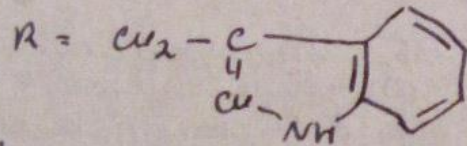 R = CH₂ - C
CH
NH